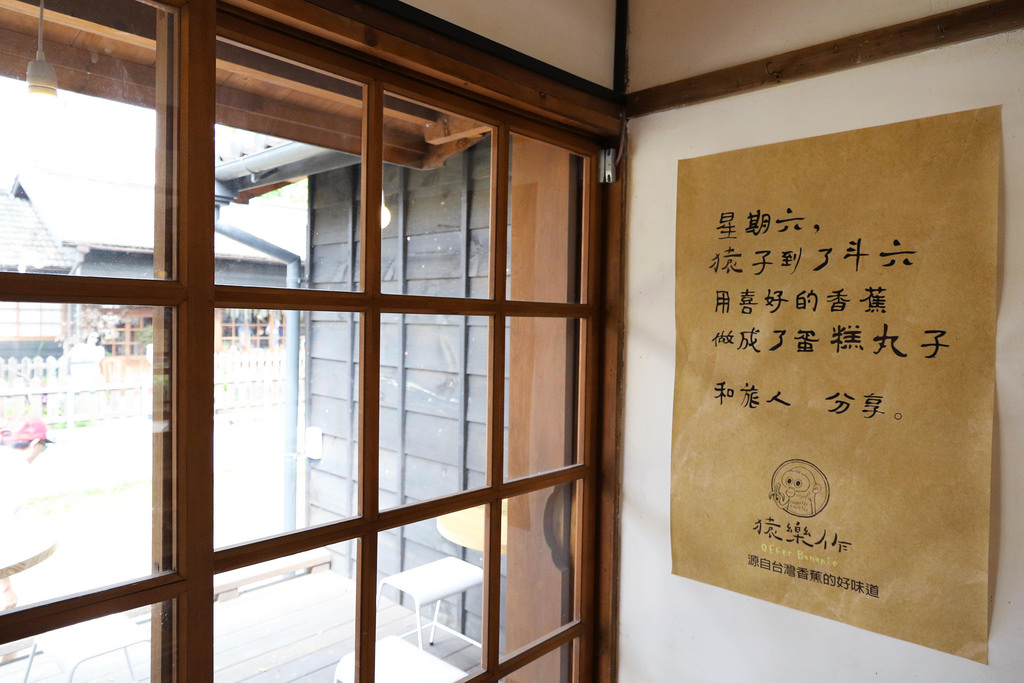 星期六，
猿子到了斗六
用喜好的香蕉
做成了蛋糕丸子
和旅人 分享。
猿樂作
Offer Banana
源自台灣香蕉的好味道